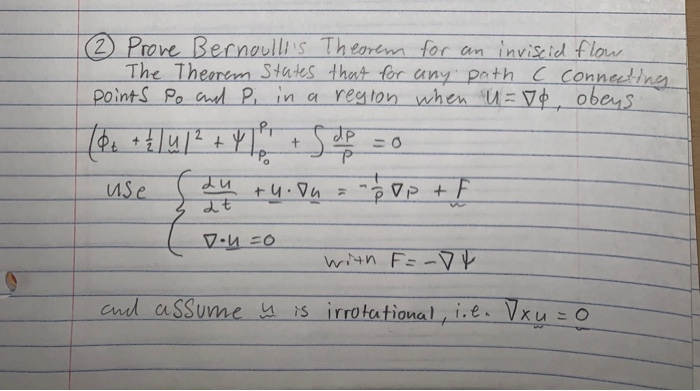 ② Prove Bernoulli's Theorem for an inviscid flow
The Theorem States that for any path C connecting
points P₀ and P₁ in a region when u = ∇ϕ, obeys
(ϕₜ + ½|u|² + Ψ|ᴾ¹ₚ₀ + ∫ dp/ρ = 0
use { du/dt + u · ∇u = -1/ρ ∇p + F
∇·u = 0
with F = -∇Ψ
and assume u is irrotational, i.e. ∇×u = 0